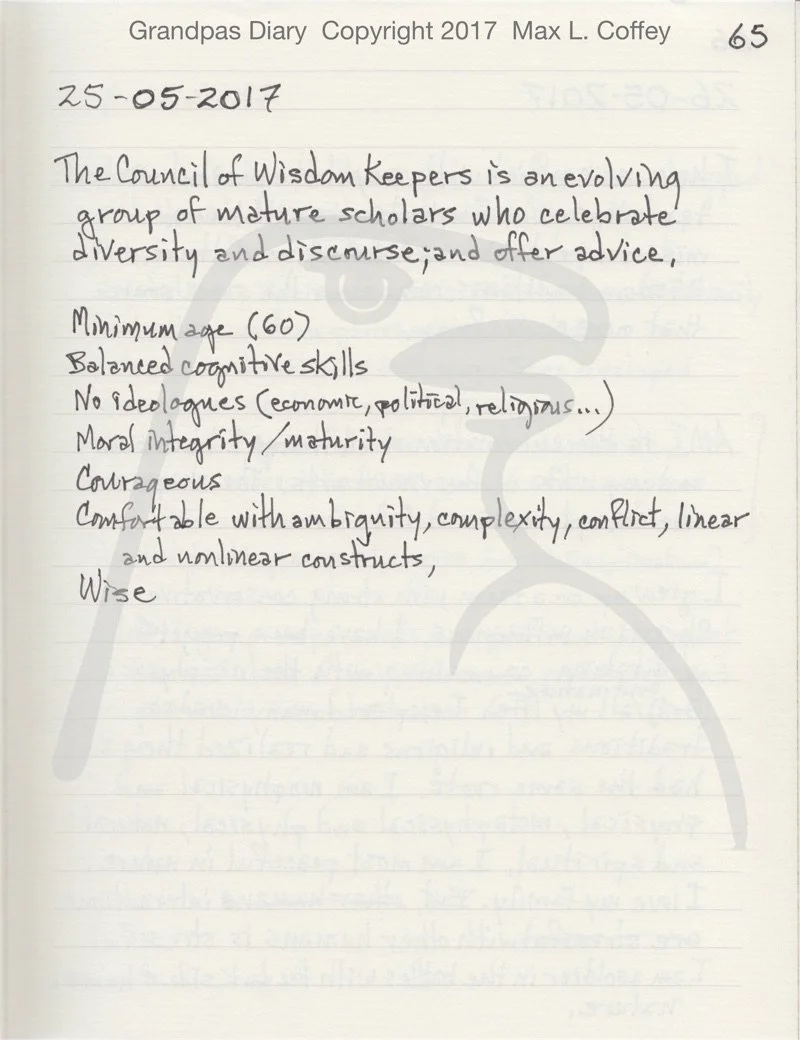 Grandpas Diary Copyright 2017 Max L. Coffey
65
25-05-2017
The Council of Wisdom Keepers is an evolving
group of mature scholars who celebrate
diversity and discourse; and offer advice,
Minimum age (60)
Balanced cognitive skills
No ideologues (economic, political, religious...)
Moral integrity/maturity
Courageous
Comfortable with ambiguity, complexity, conflict, linear
and nonlinear constructs,
Wise